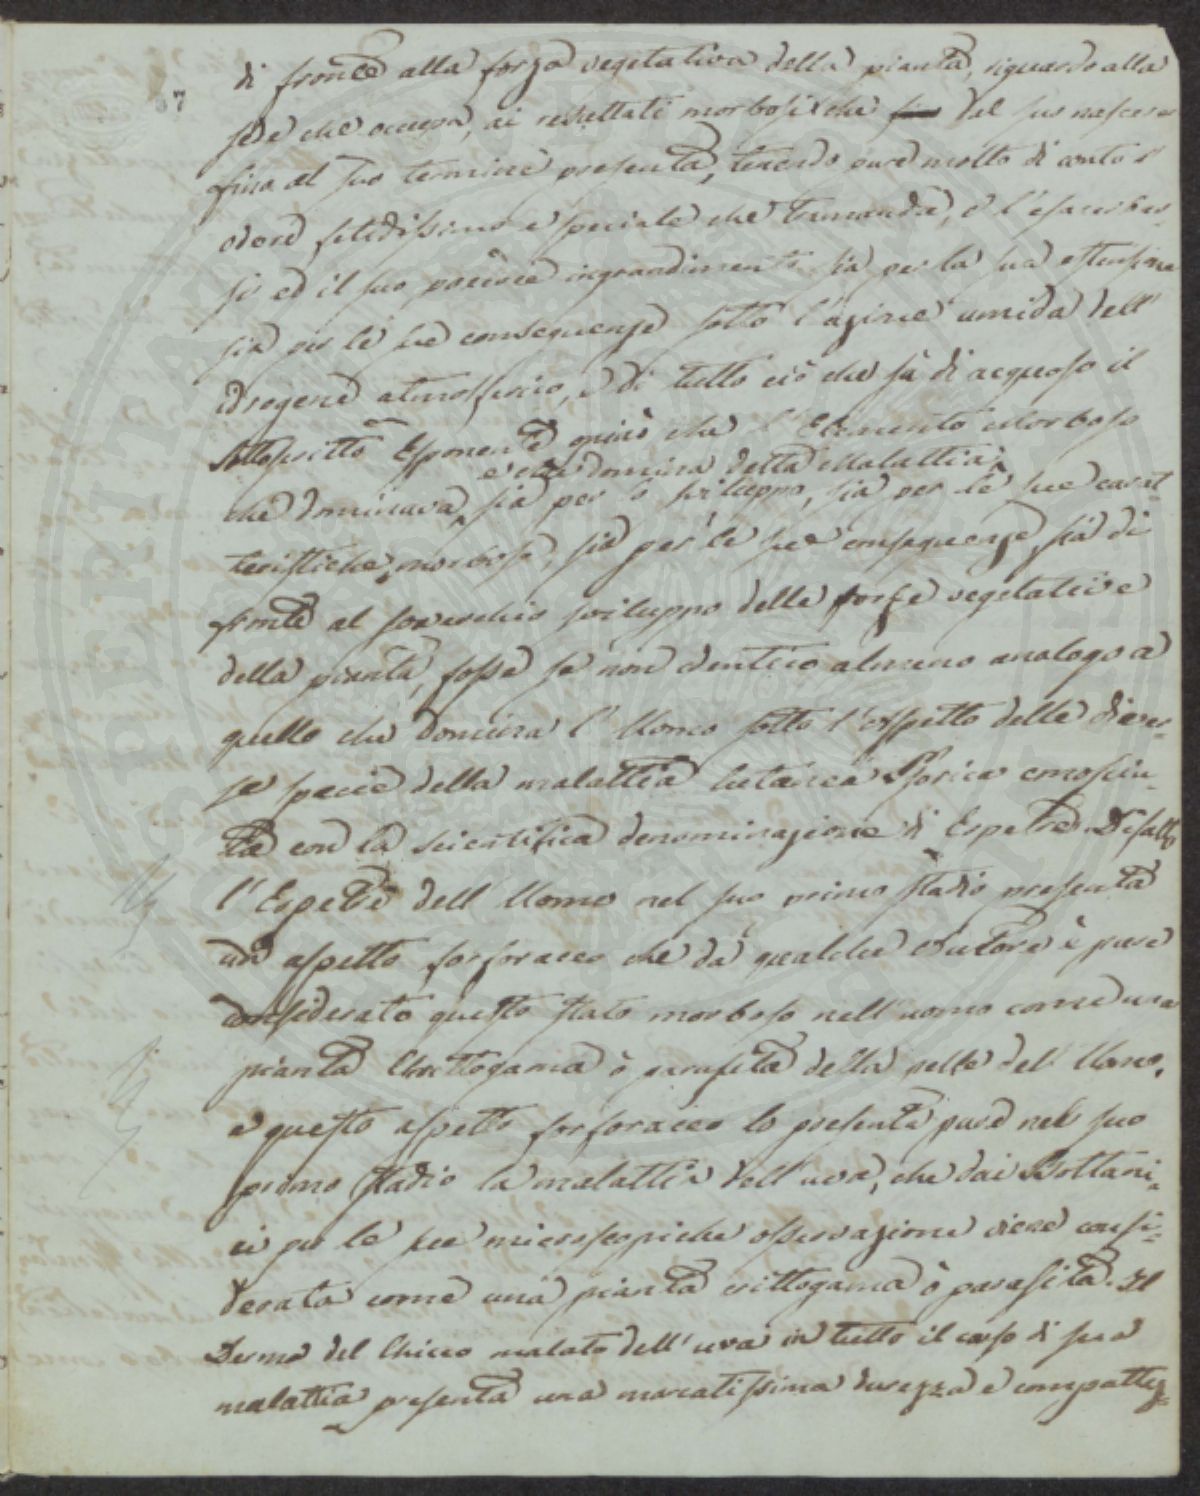 67
di fronte alla forza vegetativa della pianta, riguardo alla
sede che occupa, ai resultati morbosi che dal suo nascere
fino al suo termine presenta, tenendo pure molto di conto l'
odore fetidissimo e speciale che tramanda, e l'esacerbar-
si ed il suo precoce ingrandimento sia per la sua estensione
sia per le sue conseguenze sotto l'azione umida dell'
idrogene atmosferico, e di tutto ciò che sà di acquoso il
Sottoscritto Esponente opinò che l'Elemento Morboso
e che domina detta Malattia
che dominava, sia per lo sviluppo, sia per le sue carat-
teristiche morbose, sia per le sue conseguenze, sia di
fronte al soverchio sviluppo delle forze vegetative
della pianta, fosse se non identico almeno analogo a
quello che domina l'Uomo sotto l'aspetto delle diver-
se specie della malattia Cutanea Psorica conosciu-
ta con la scientifica denominazione di Erpete. Difatto
l'Erpete dell'Uomo nel suo primo stadio presenta
un aspetto forforaceo che da qualche Autore è pure
considerato questo stato morboso nell'uomo come una
pianta Crittogama ò parasita della pelle del Uomo,
e questo aspetto forforaceo lo presenta pure nel suo
primo stadio la malattia dell'uva, che dai Bottani-
ci per le sue microscopiche osservazione viene consi-
derata come una pianta crittogama ò parasita. Il
Derma del Chicco malato dell'uva in tutto il corso di sua
malattia presenta una marcatissima durezza e compattez-